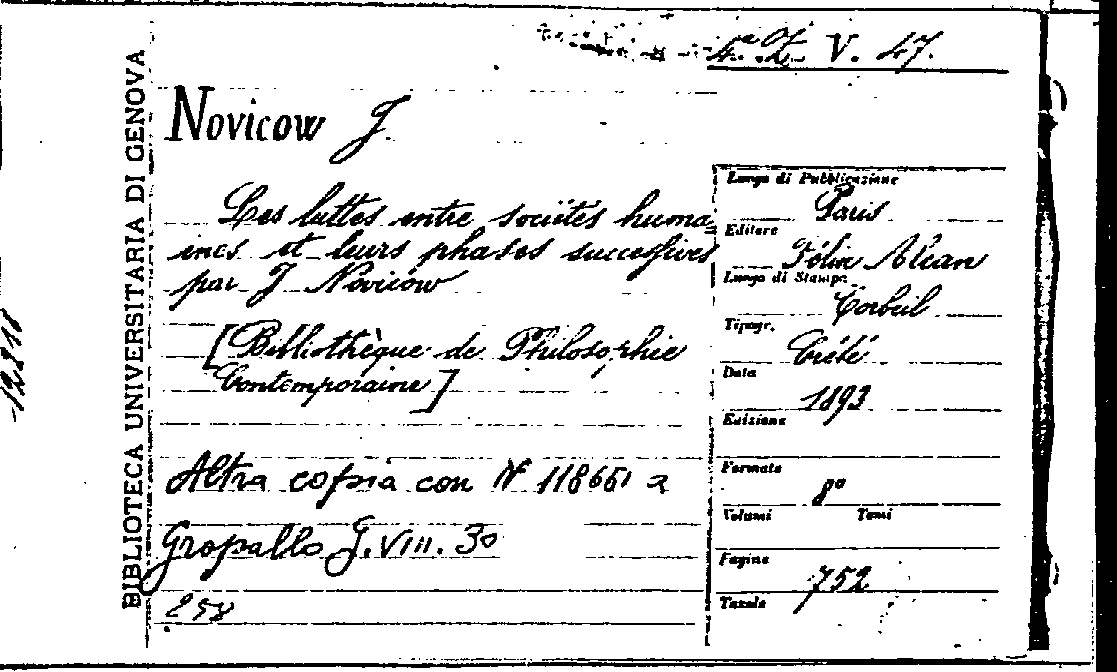 4.ª Z. V. 47.
BIBLIOTECA UNIVERSITARIA DI GENOVA
Novicow J.
Les luttes entre sociétés huma=
ines et leurs phases successives
par J. Novicow
[Bibliothèque de Philosophie
Contemporaine]
Altra copia con N 118661 a
Gropallo G.VIII. 30
258
Luogo di Pubblicazione
Paris
Editore
Félix Alcan
Luogo di Stampa
Corbeil
Tipogr.
Crété
Data
1893
Edizione
Formato
8º
Volumi Tomi
Pagine
752
Tavole